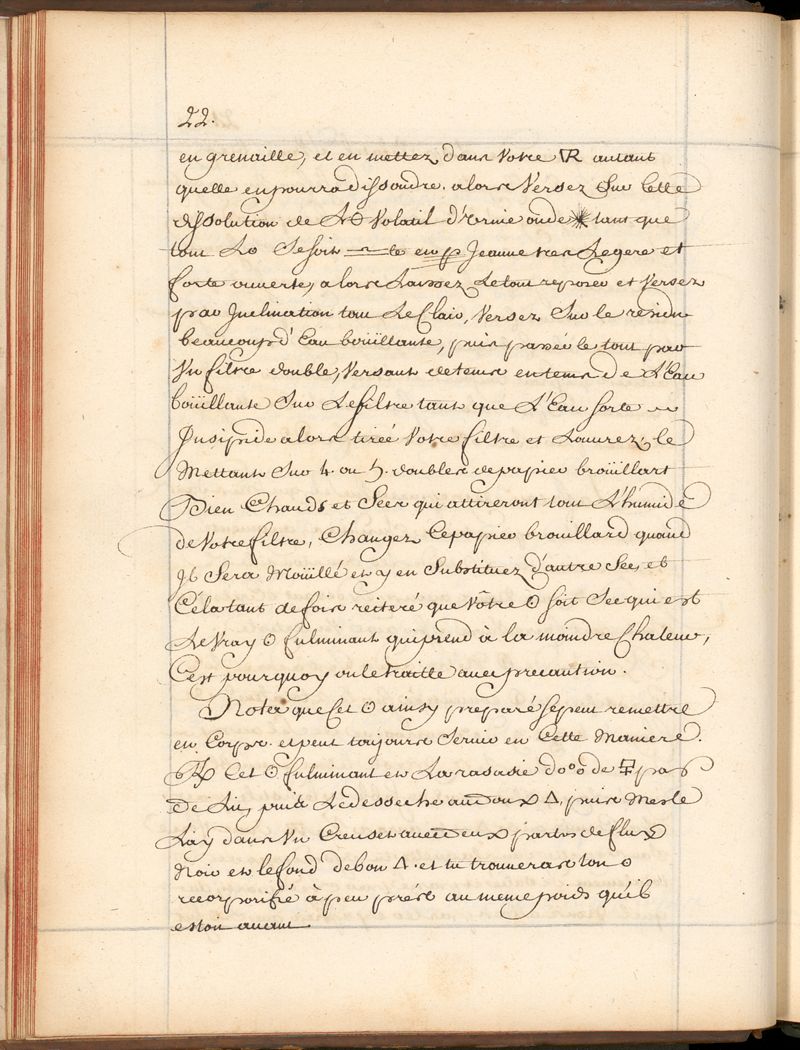 22.
en grenaille, et en mettez dans votre 🜆 autant
quelle en pourra dissoudre. alors versez sur cette
dissolution de L'🜍 volatil d'urine ou de ✳ tant que
tout Lo se soit en Jeaune tres Legere et
forte ouverte, alors Laissez Le tout reposer et versez
par Inclination tout Le Clair, versez sur le residu
beaucoup d'Eau boüillante, puis passée le tout par
Un filtre double, versant de tems en tems de L'Eau
boüillante sur Le filtre tant que L'Eau sorte
Insipide alors tirée votre filtre et L'ouvrez, le
Mettant sur 4. ou 5. doubles de papier broüillart
Bien Chauds et Secs qui attireront tout L'humide
de votre filtre, Changez Le papier brouillard quand
Il Sera Moüillé et y en Substituez d'autre Sec, et
Céla tant de fois reiteré que vôtre ☉ soit Sec qui est
Le vray ☉ fulminant qui prend à la moindre Chaleur,
C'est pourquoy on le traitte avec precaution.
Notez que Cet ☉ ainsy preparé se peut remettre
en Corps. et peut toujours Servir en Cette Maniere.
℞ Cet ☉ fulminant et La rasasie d'o°o de 🜖 pas
De Lui, puis Le desseche au doux △, puis Mesle
L'ay dans Un Creuset avec deux partes de flux
Noir et le fond de bon △. et tu trouveras ton ☉
recorporifié à peu prés au meme poids qu'il
estoit avant